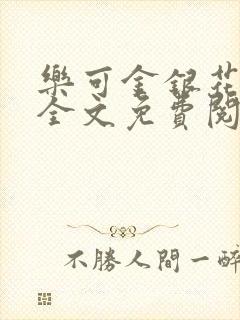 樂可金銀花
全文免費閱
不勝人間一醉